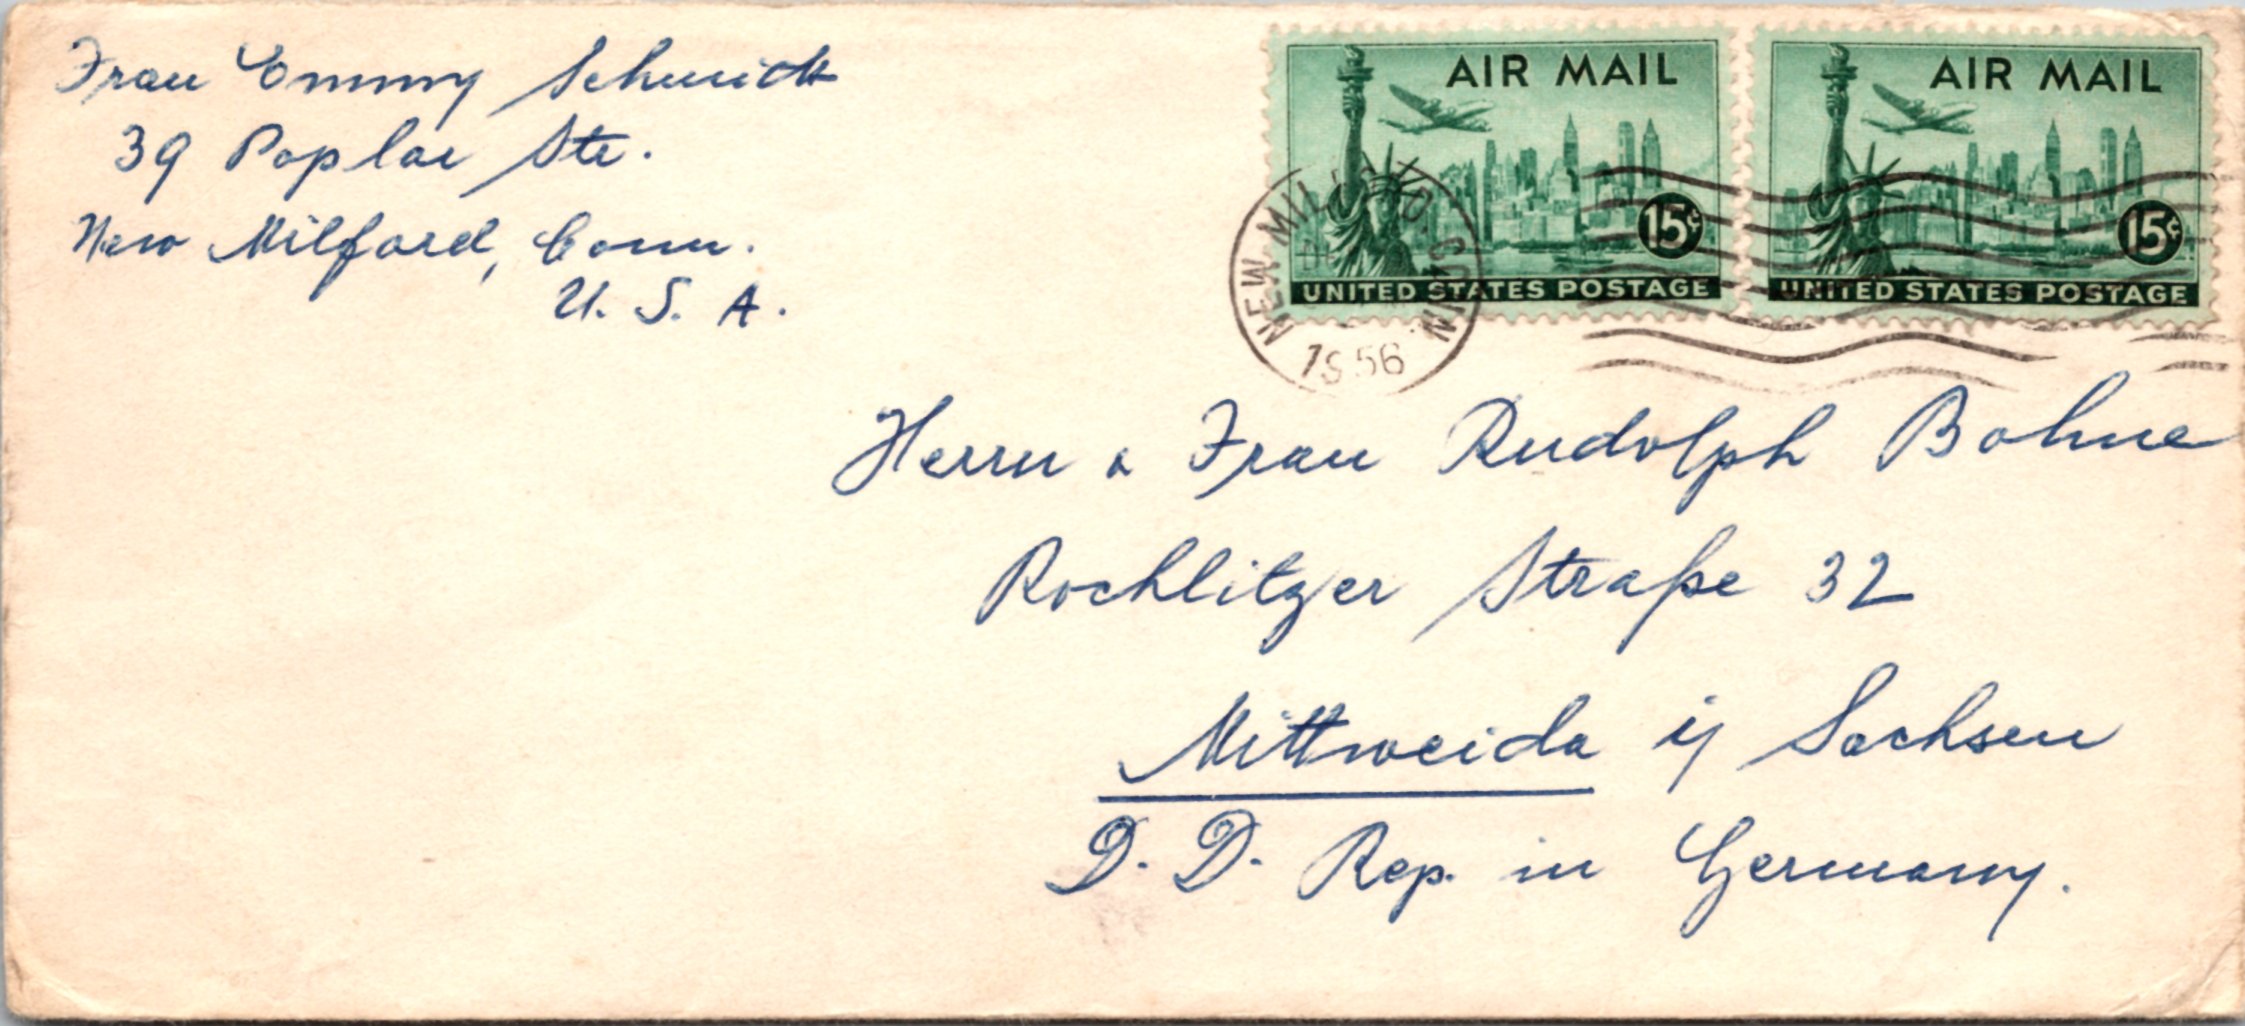 Frau Emmy Schmidt
39 Poplar Str.
New Milford, Conn.
U. S. A.
AIR MAIL
15¢
UNITED STATES POSTAGE
AIR MAIL
15¢
UNITED STATES POSTAGE
NEW MILFORD. CONN
1956
Herrn & Frau Rudolph Bohne
Rochlitzer Straße 32
Mittweida i/ Sachsen
D. D. Rep. in Germany.